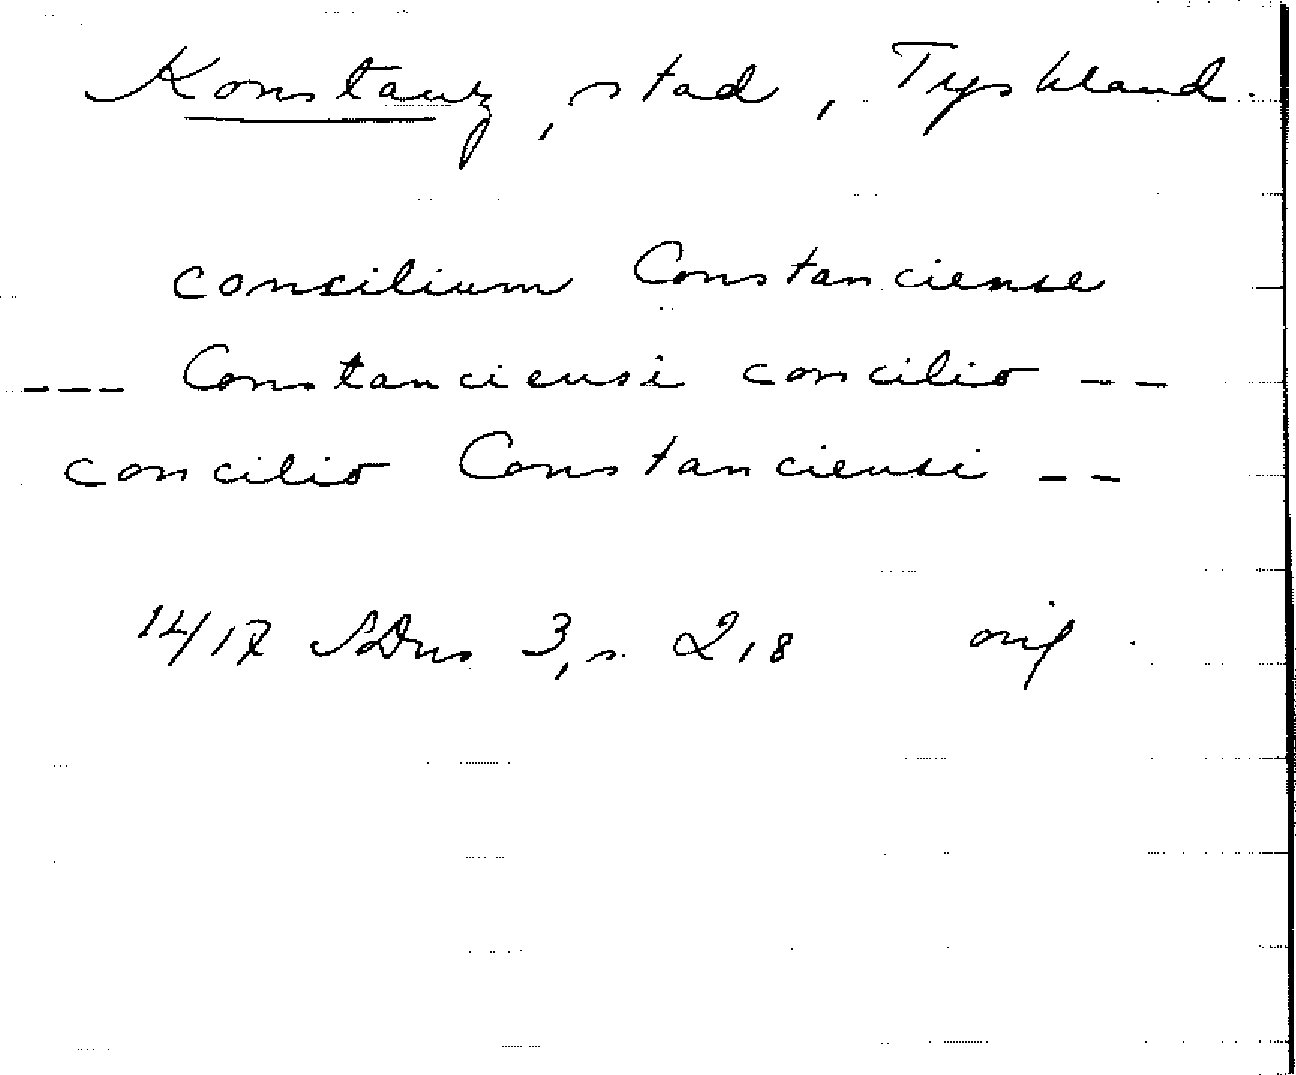 Konstanz, stad, Tyskland.
consilium Constanciense
--- Constanciensi concilio --
concilio Constanciensi --
1417 SDns 3, s. 218 orig.